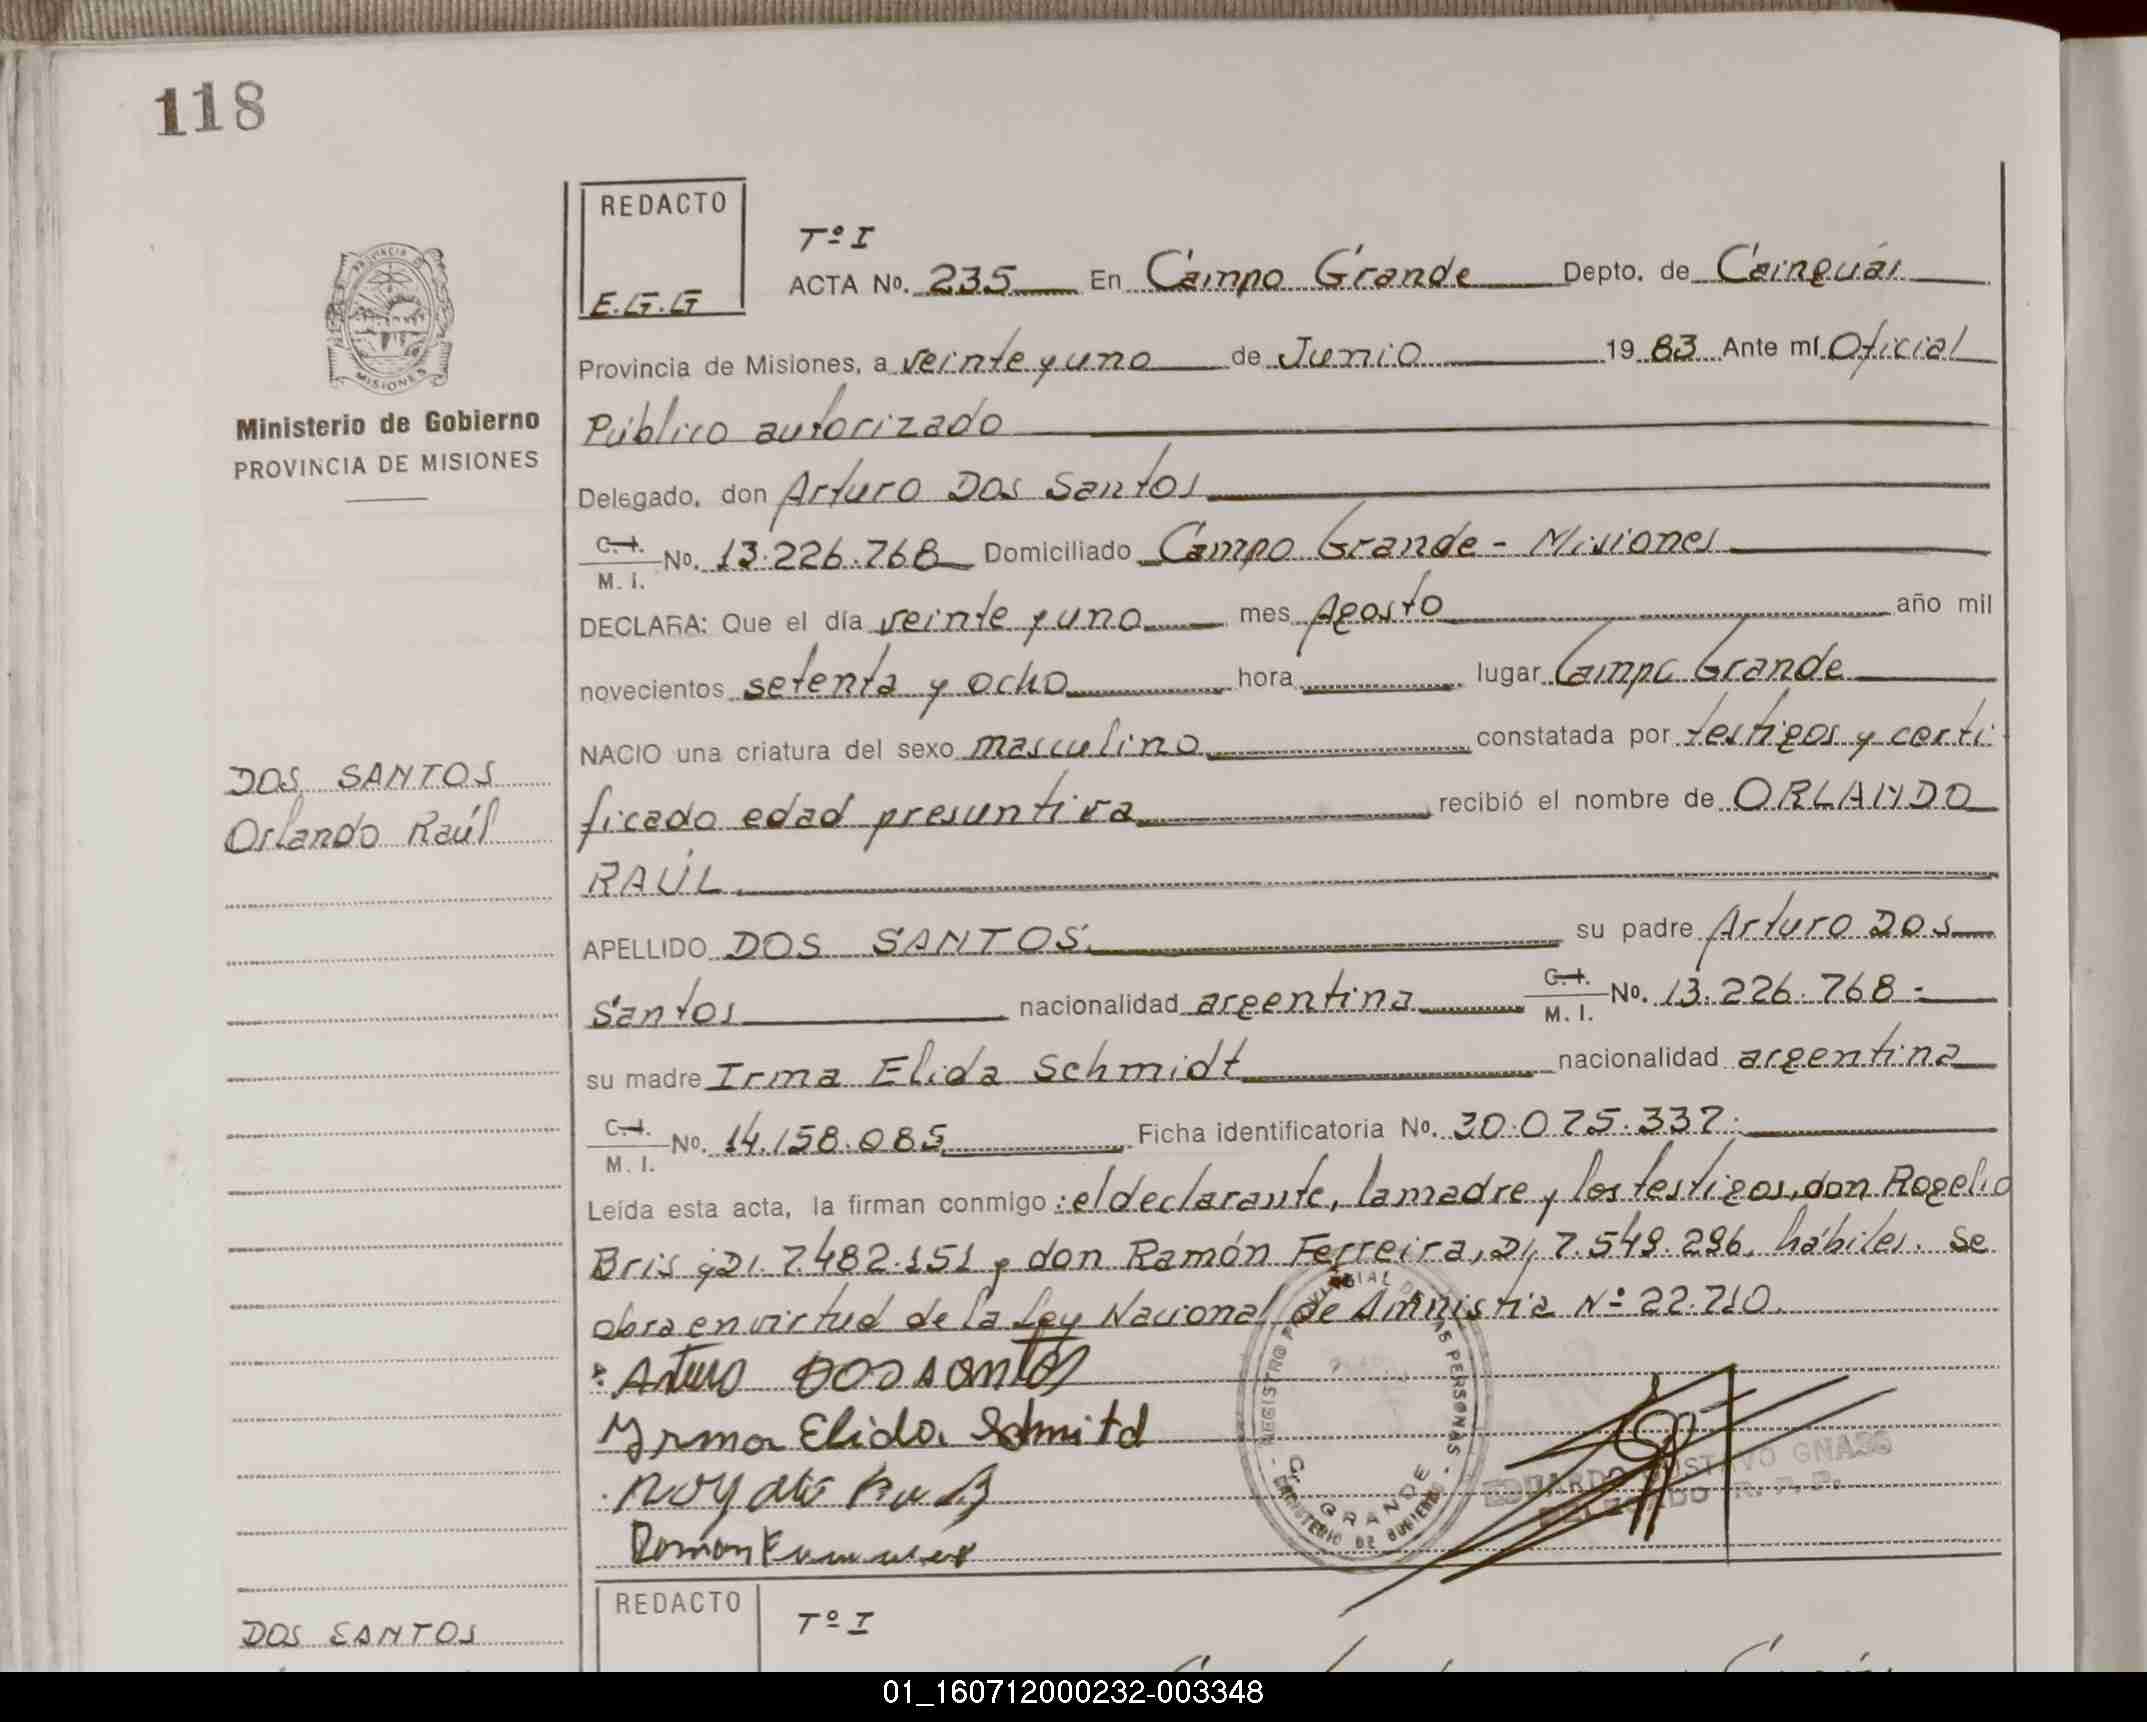 118
REDACTO
E.G.G
Tº I
ACTA No. 235 En Campo Grande Depto. de Cainguás
Provincia de Misiones, a veinte y uno de Junio 19 83 Ante mí Oficial
Público autorizado
Delegado, don Arturo Dos Santos
C.I.
M. I. No. 13.226.768 Domiciliado Campo Grande - Misiones
DECLARA: Que el día veinte y uno mes Agosto año mil
novecientos setenta y ocho hora lugar Campo Grande
NACIO una criatura del sexo masculino constatada por testigos y certi
ficado edad presuntiva recibió el nombre de ORLANDO
RAÚL
APELLIDO DOS SANTOS su padre Arturo Dos
Santos nacionalidad argentina C.I. M. I. No. 13.226.768.-
su madre Irma Elida Schmidt nacionalidad argentina
C.I.
M. I. No. 14.158.085 Ficha identificatoria No. 30.075.337.-
Leída esta acta, la firman conmigo: el declarante, la madre y los testigos, don Rogelio
Bris, DI. 7.482.151 y don Ramón Ferreira, DI, 7.549.296, hábiles. Se
obra en virtud de la Ley Nacional de Amnistia Nº 22.710.
Arturo DOS SANTOS
Yrma Elida Schmitd
Ramon
REGISTRO PROVINCIAL DE LAS PERSONAS
C. GRANDE
MINISTERIO DE GOBIERNO
EDUARDO GUSTAVO GNASS
DELEGADO R. P. P.
PROVINCIA DE MISIONES
Ministerio de Gobierno
PROVINCIA DE MISIONES
DOS SANTOS
Orlando Raúl
DOS SANTOS
REDACTO
Tº I
01_160712000232-003348